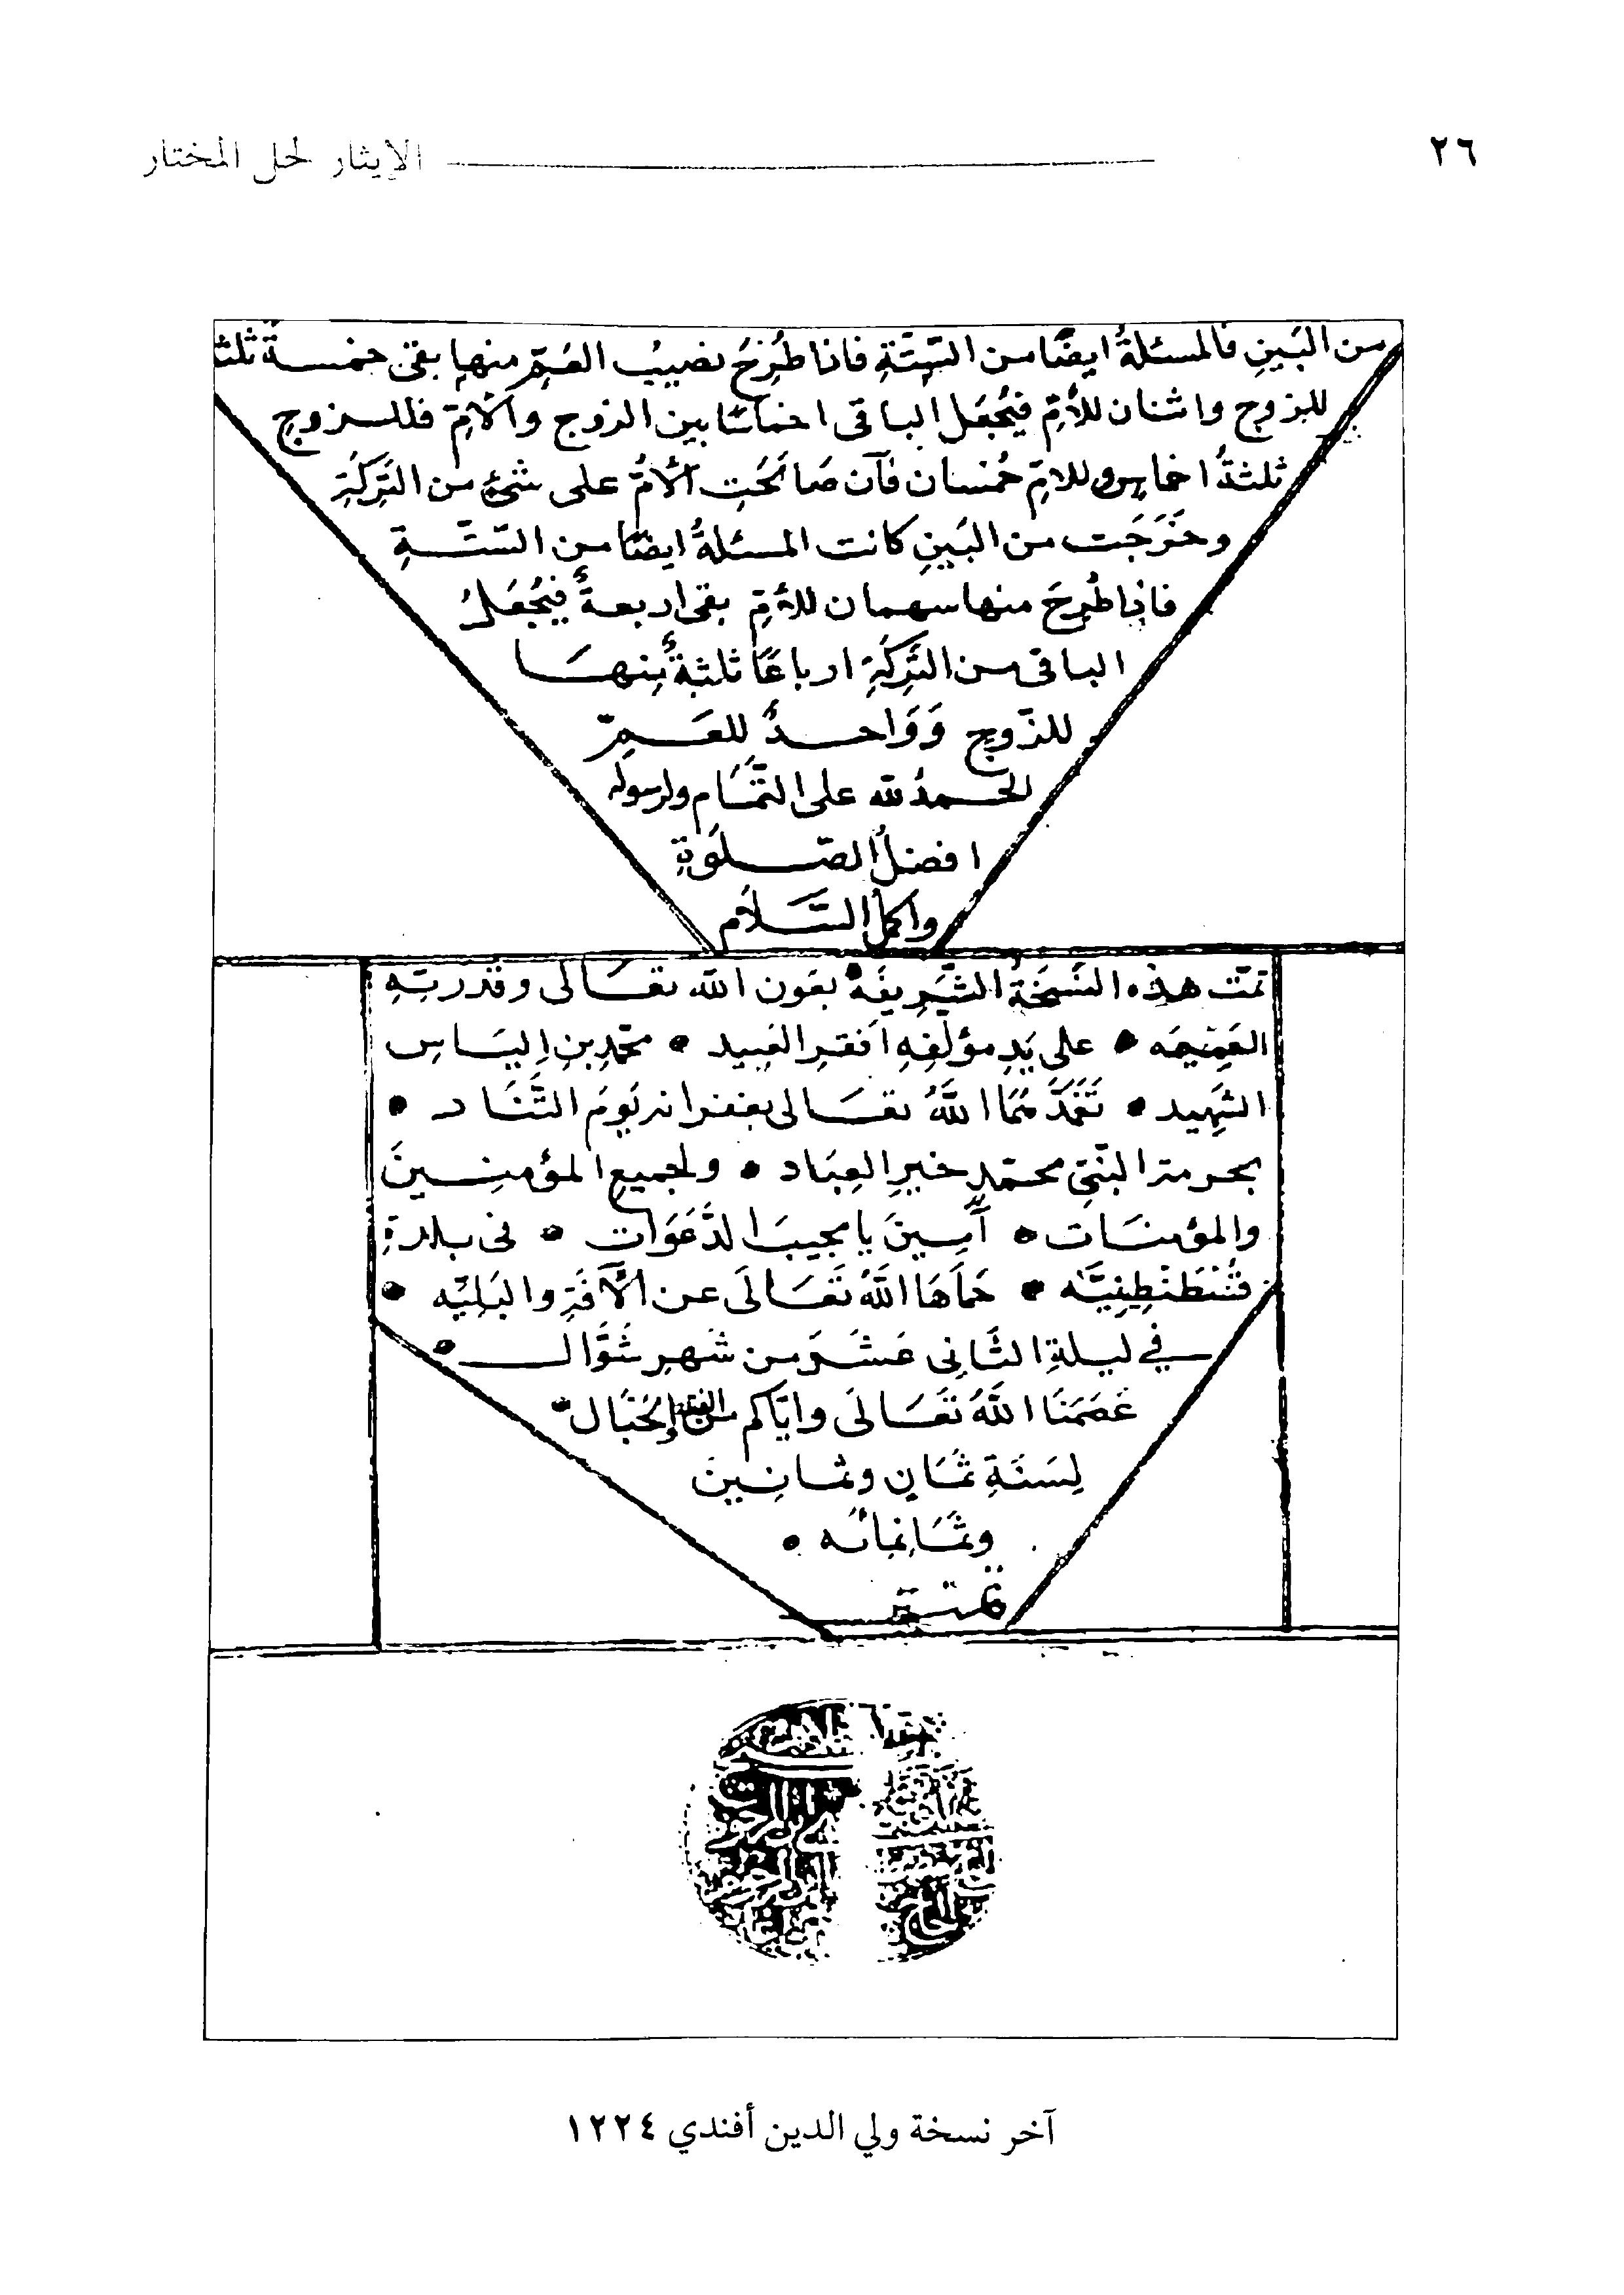 ٢٦ الإيثار لحل المختار
من البَينِ فالمسئلةُ ايضًا من السِّتَّةِ فاذا طُرِحَ نصيبُ العَمِّ منها بقى خمسةٌ ثلثة
للزوج واثنان للأُمِّ فيُجْعَل الباقى اخماسًا بين الزوج والأمّ فللزوجِ
ثلثةُ اخماسٍ وللامِّ خُمسان فآن صَالحَتِ الأمُّ على شئٍ من التَرِكَةِ
وخَرَجَت من البَينِ كانت المسئلةُ ايضًا من السّتَّةِ
فاذا طُرِحَ منها سهمان للأمّ بقى اربعةٌ فيُجْعَلُ
الباقى من التَرِكَةِ ارباعًا ثلثةٌ منهَا
للزَوجِ وَوَاحدٌ للعَمِّ
الحمدُ لله على التَّمَام ولرسوله
افضلُ الصّلوَةِ
واكملُ السَّلَام
تمّت هذه النُسْخَةُ الشَّرِيفَةُ بعَون الله تعَالى وقدرتِهِ
العَمِيمَه • على يَدِ مؤلّفِهِ افقرِ العَبيد • محمّد بن اليَاس
الشهِيد • تَغَمَّدَهُمَا اللَّهُ تعَالى بغفرانه يَومَ التَّنَاد •
بحرمة النبّىِ محمّدٍ خيرِ العِبَاد • ولجميع المؤمنِينَ
والمؤمنَات • آمِينَ يا مجيبَ الدَّعَوَات • فى بلدةِ
قُسْطَنْطِنِيَّه • حَمَاهَا اللَّهُ تَعَالَى عن الآفَةِ والبَلِيّه •
في ليلةِ الثّانى عَشَرَ من شهرِ شَوَّال •
عَصَمَنَا اللَّهُ تَعَالَى وايّاكم من الفتنة والخَبَال •
لِسَنَةِ ثمَانٍ وثمانِينَ
وثمَانمائه •
تمت
آخر نسخة ولي الدين أفندي ١٢٢٤